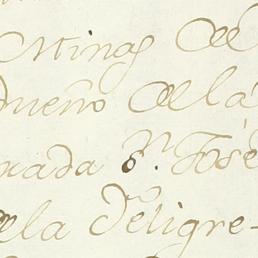 Minas de
dueño de la
nada Sn. José
de la Feligre-